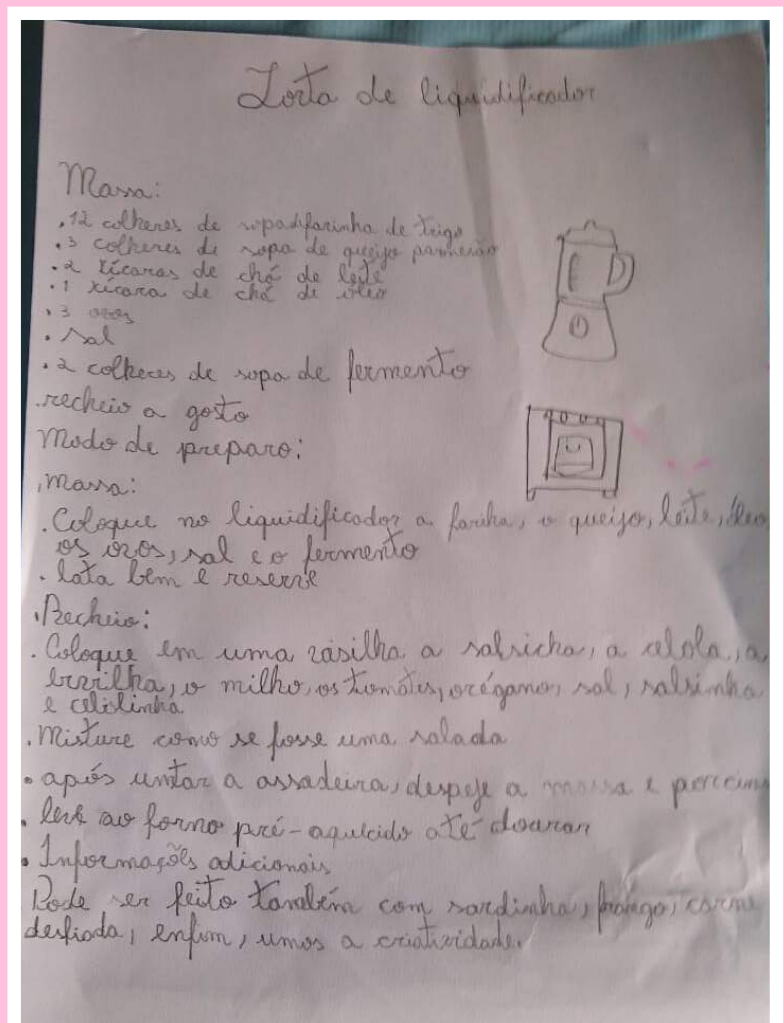 Torta de liquidificador
Massa:
.12 colheres de sopa farinha de trigo
.3 colheres de sopa de queijo parmesão
.2 xícaras de chá de leite
.1 xícara de chá de óleo
.3 ovos
.sal
.2 colheres de sopa de fermento
.recheio a gosto
Modo de preparo:
.massa:
.Coloque no liquidificador a farinha, o queijo, leite, óleo,
os ovos, sal e o fermento
.bata bem e reserve
.Recheio:
.Coloque em uma vasilha a salsicha, a cebola, a
ervilha, o milho, os tomates, orégano, sal, salsinha
e cebolinha.
.Misture como se fosse uma salada
.após untar a assadeira, despeje a massa e
.leve ao forno pré-aquecido até dourar
.Informações adicionais
Pode ser feito também com sardinha, frango, carne
desfiada, enfim, a criatividade.